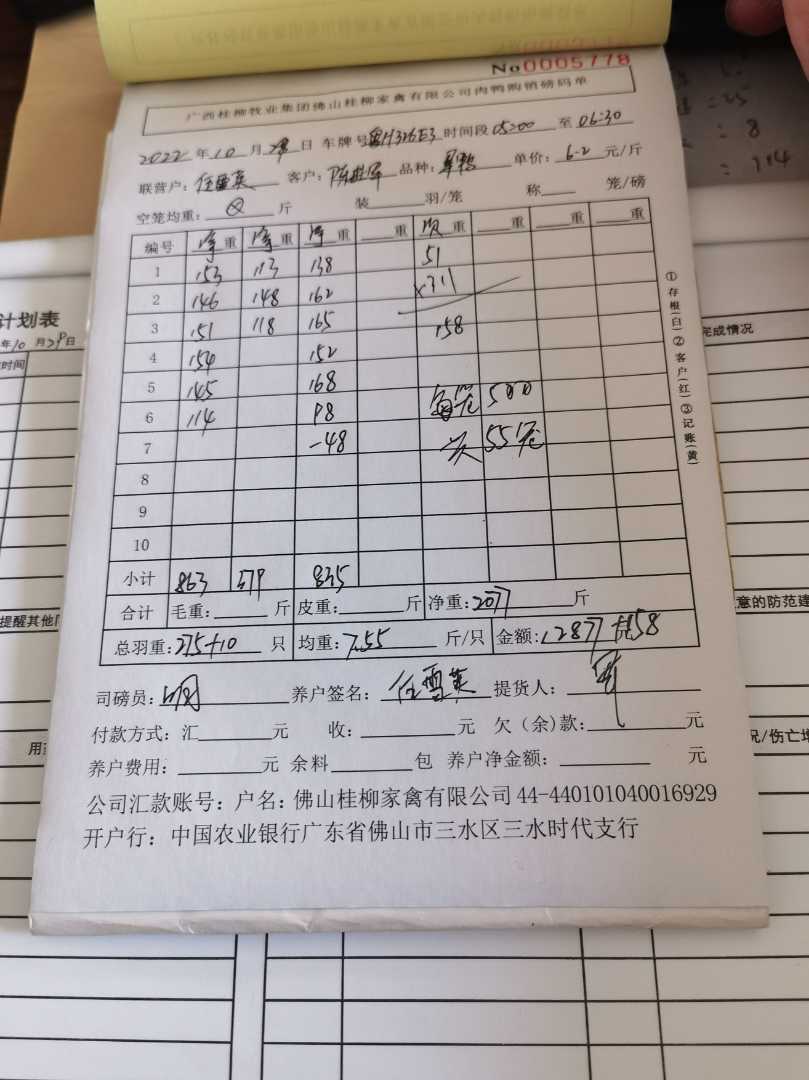 No 0005778
广西桂柳牧业集团佛山桂柳家禽有限公司肉鸭购销磅码单
2022 年 10 月 29 日 车牌号 H326E3 时间段 05:00 至 06:30
联营户: 任雪英 客户: 品种: 单价: 6.2 元/斤
空笼均重: 斤 装 羽/笼 称 笼/磅
编号 净重 净重 净重 重 重 重 重 重
1 153 113 138 51
2 146 148 162 x311
3 151 118 165 158
4 154 152
5 145 168 每笼 500
6 114 98
7 -48 55笼
8
9
10
小计 863 379 835
合计 毛重: 斤 皮重: 斤 净重: 2077 斤
总羽重: 275+10 只 均重: 7.55 斤/只 金额: 12877 58
司磅员: 养户签名: 任雪英 提货人:
付款方式: 汇 元 收: 元 欠(余)款: 元
养户费用: 元 余料 包 养户净金额: 元
公司汇款账号: 户名: 佛山桂柳家禽有限公司 44-440101040016929
开户行: 中国农业银行广东省佛山市三水区三水时代支行
①存根(白)②客户(红)③记账(黄)
计划表
年10月29日
时间
提醒其他
用
完成情况
意的防范建
况/伤亡地